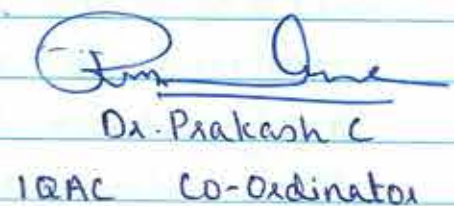 Dr. Prakash C
IQAC Co-Ordinator